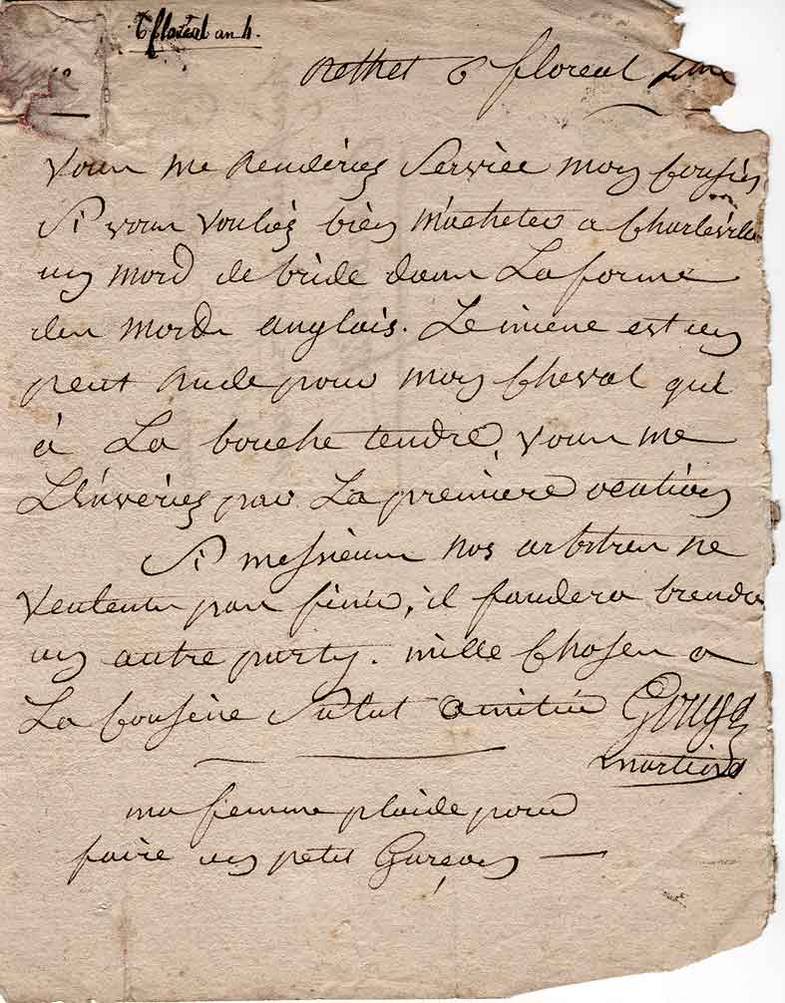 6 floréal an 4.
Rethel 6 floreal 4me
Vous me Renderiez Service mon Cousin
Si vous vouliez bien m'acheter a Charleville
un mord de bride dans La forme
des mords anglais. Le miene est un
peut Rude pour mon Cheval qui
à La bouche tendre, Vous me
L'enveriez par La premiere
Si messieurs nos arbitres ne
Veulents pas finir, il faudera brendre
un autre party. mille Choses a
La Cousine Salut amitiée
Martin
ma femme plaide pour
faire un petit Garçon —